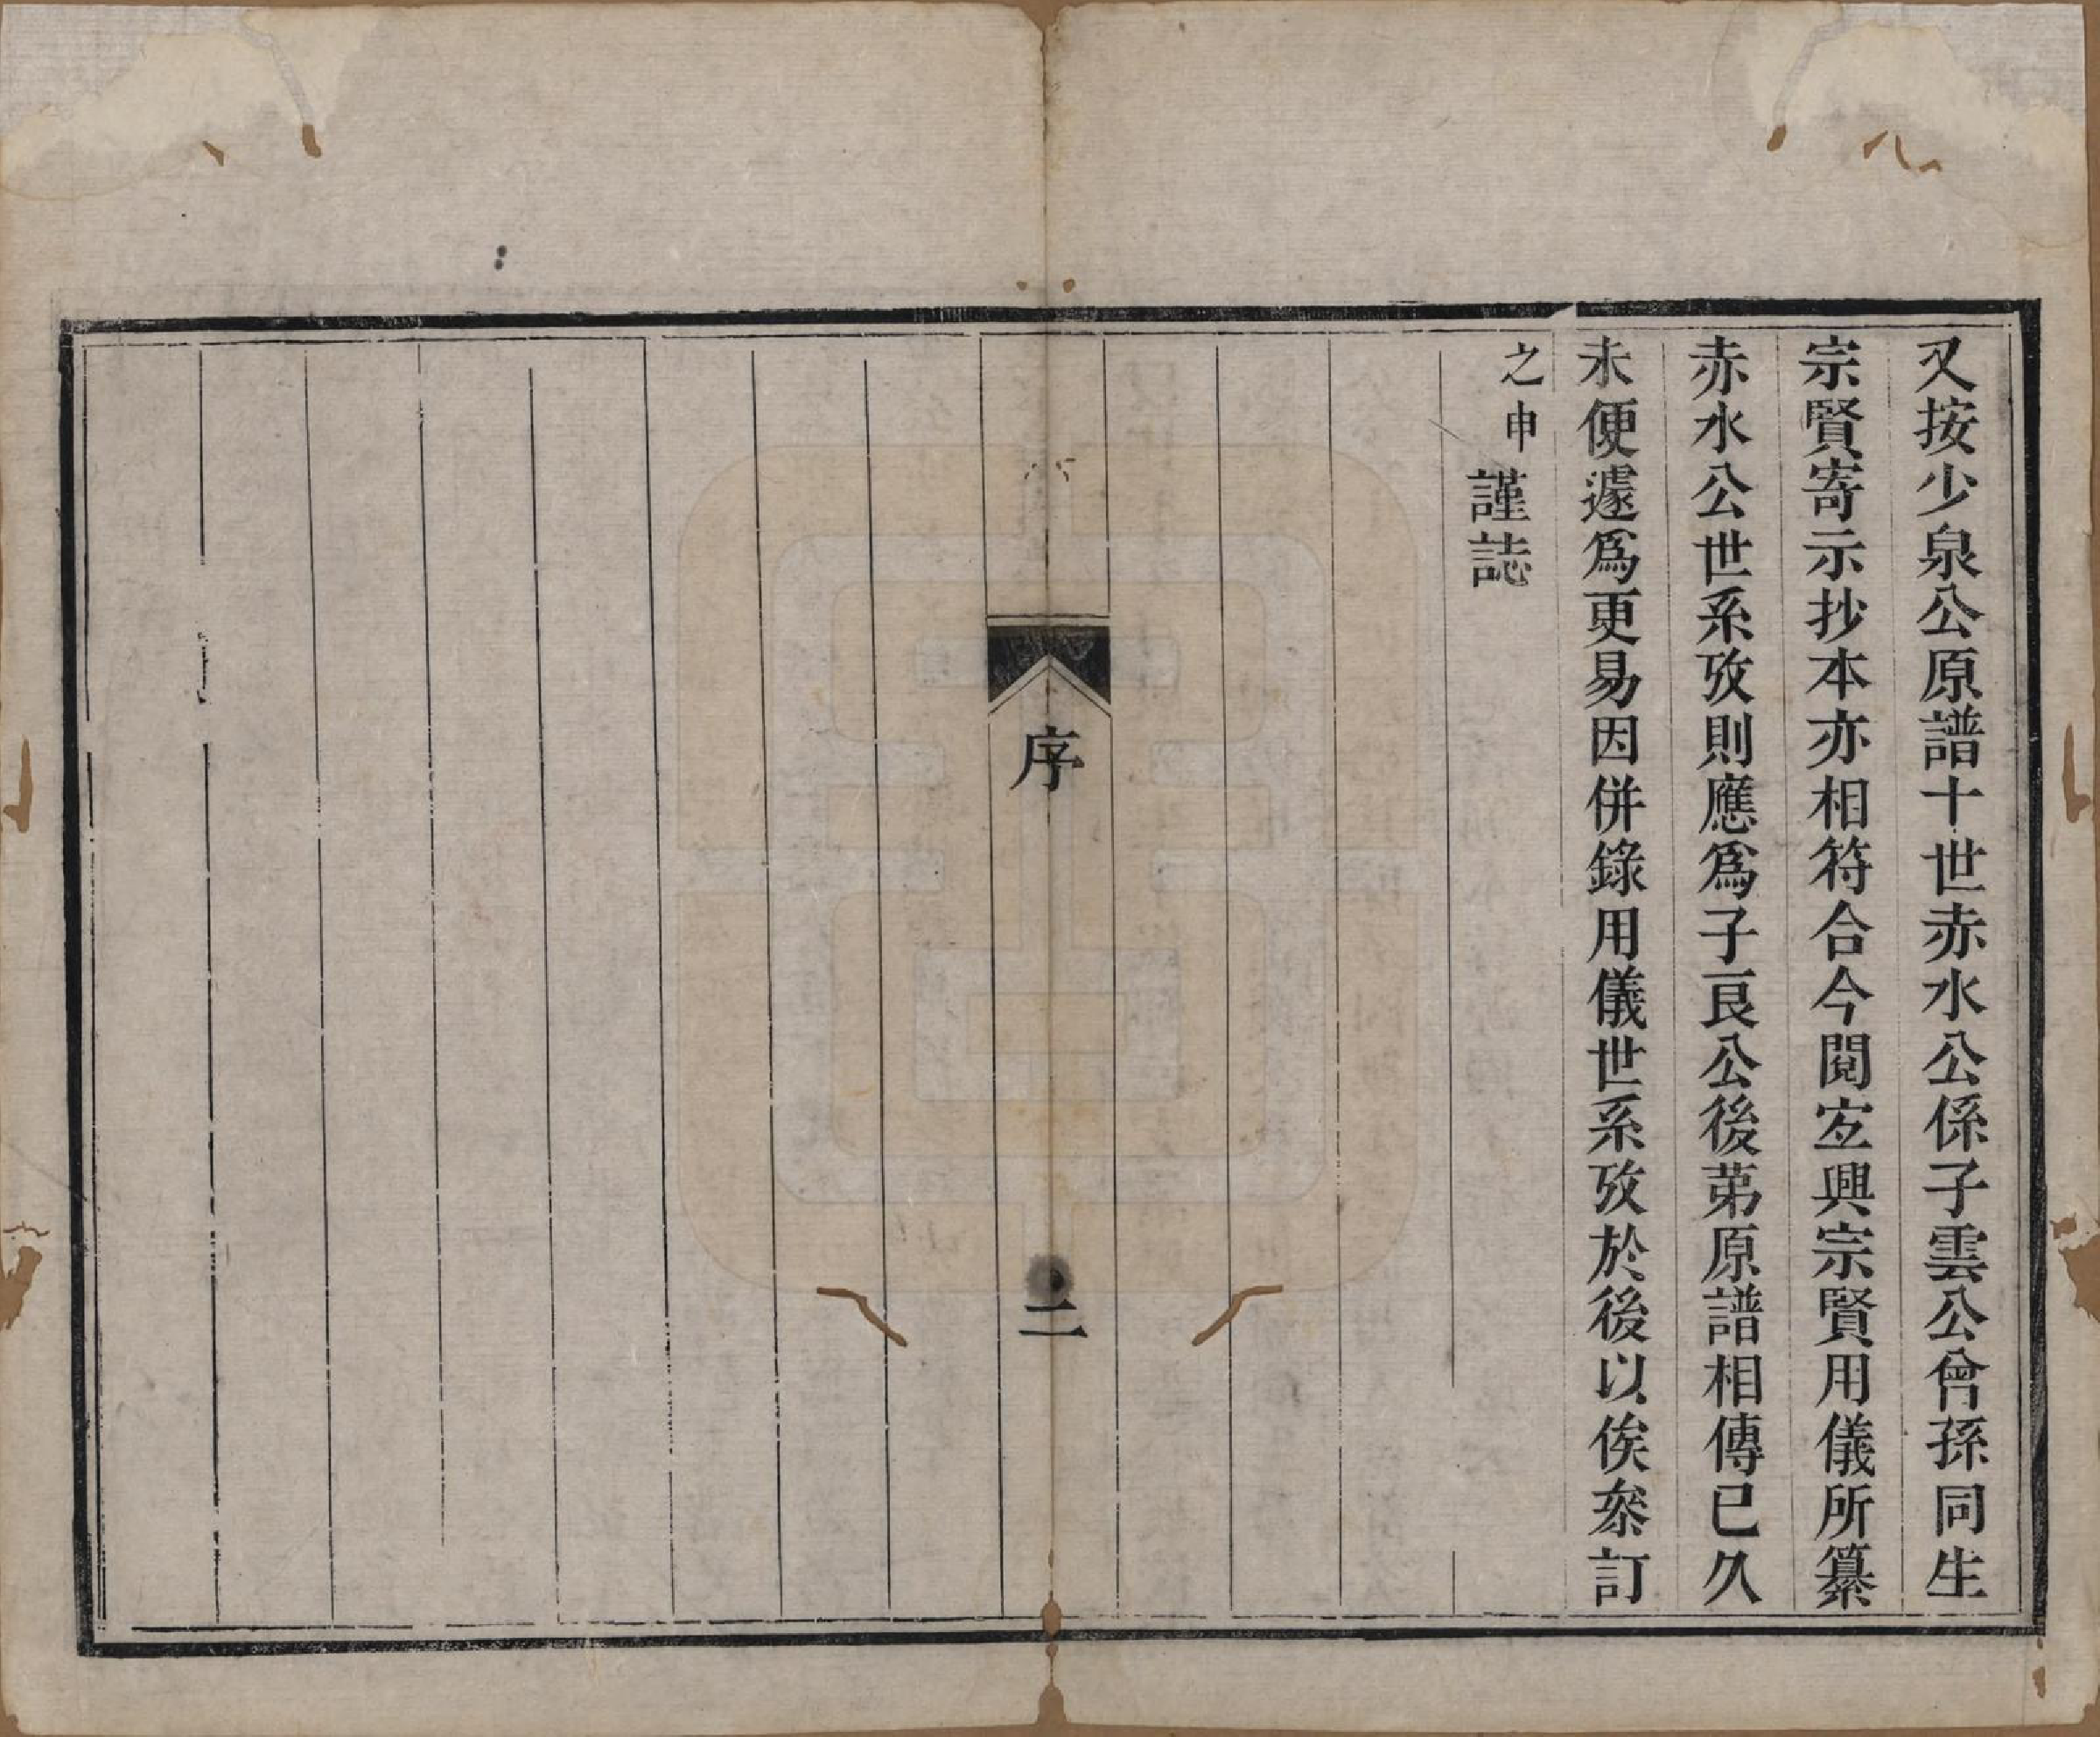 又按少泉公原譜十世赤水公係子雲公曾孫同生
宗賢寄示抄本亦相符合今閱宐興宗賢用儀所纂
赤水公世系攷則應爲子良公後苐原譜相傳已久
未便遽爲更易因併錄用儀世系攷於後以俟叅訂
之申謹誌
序
二